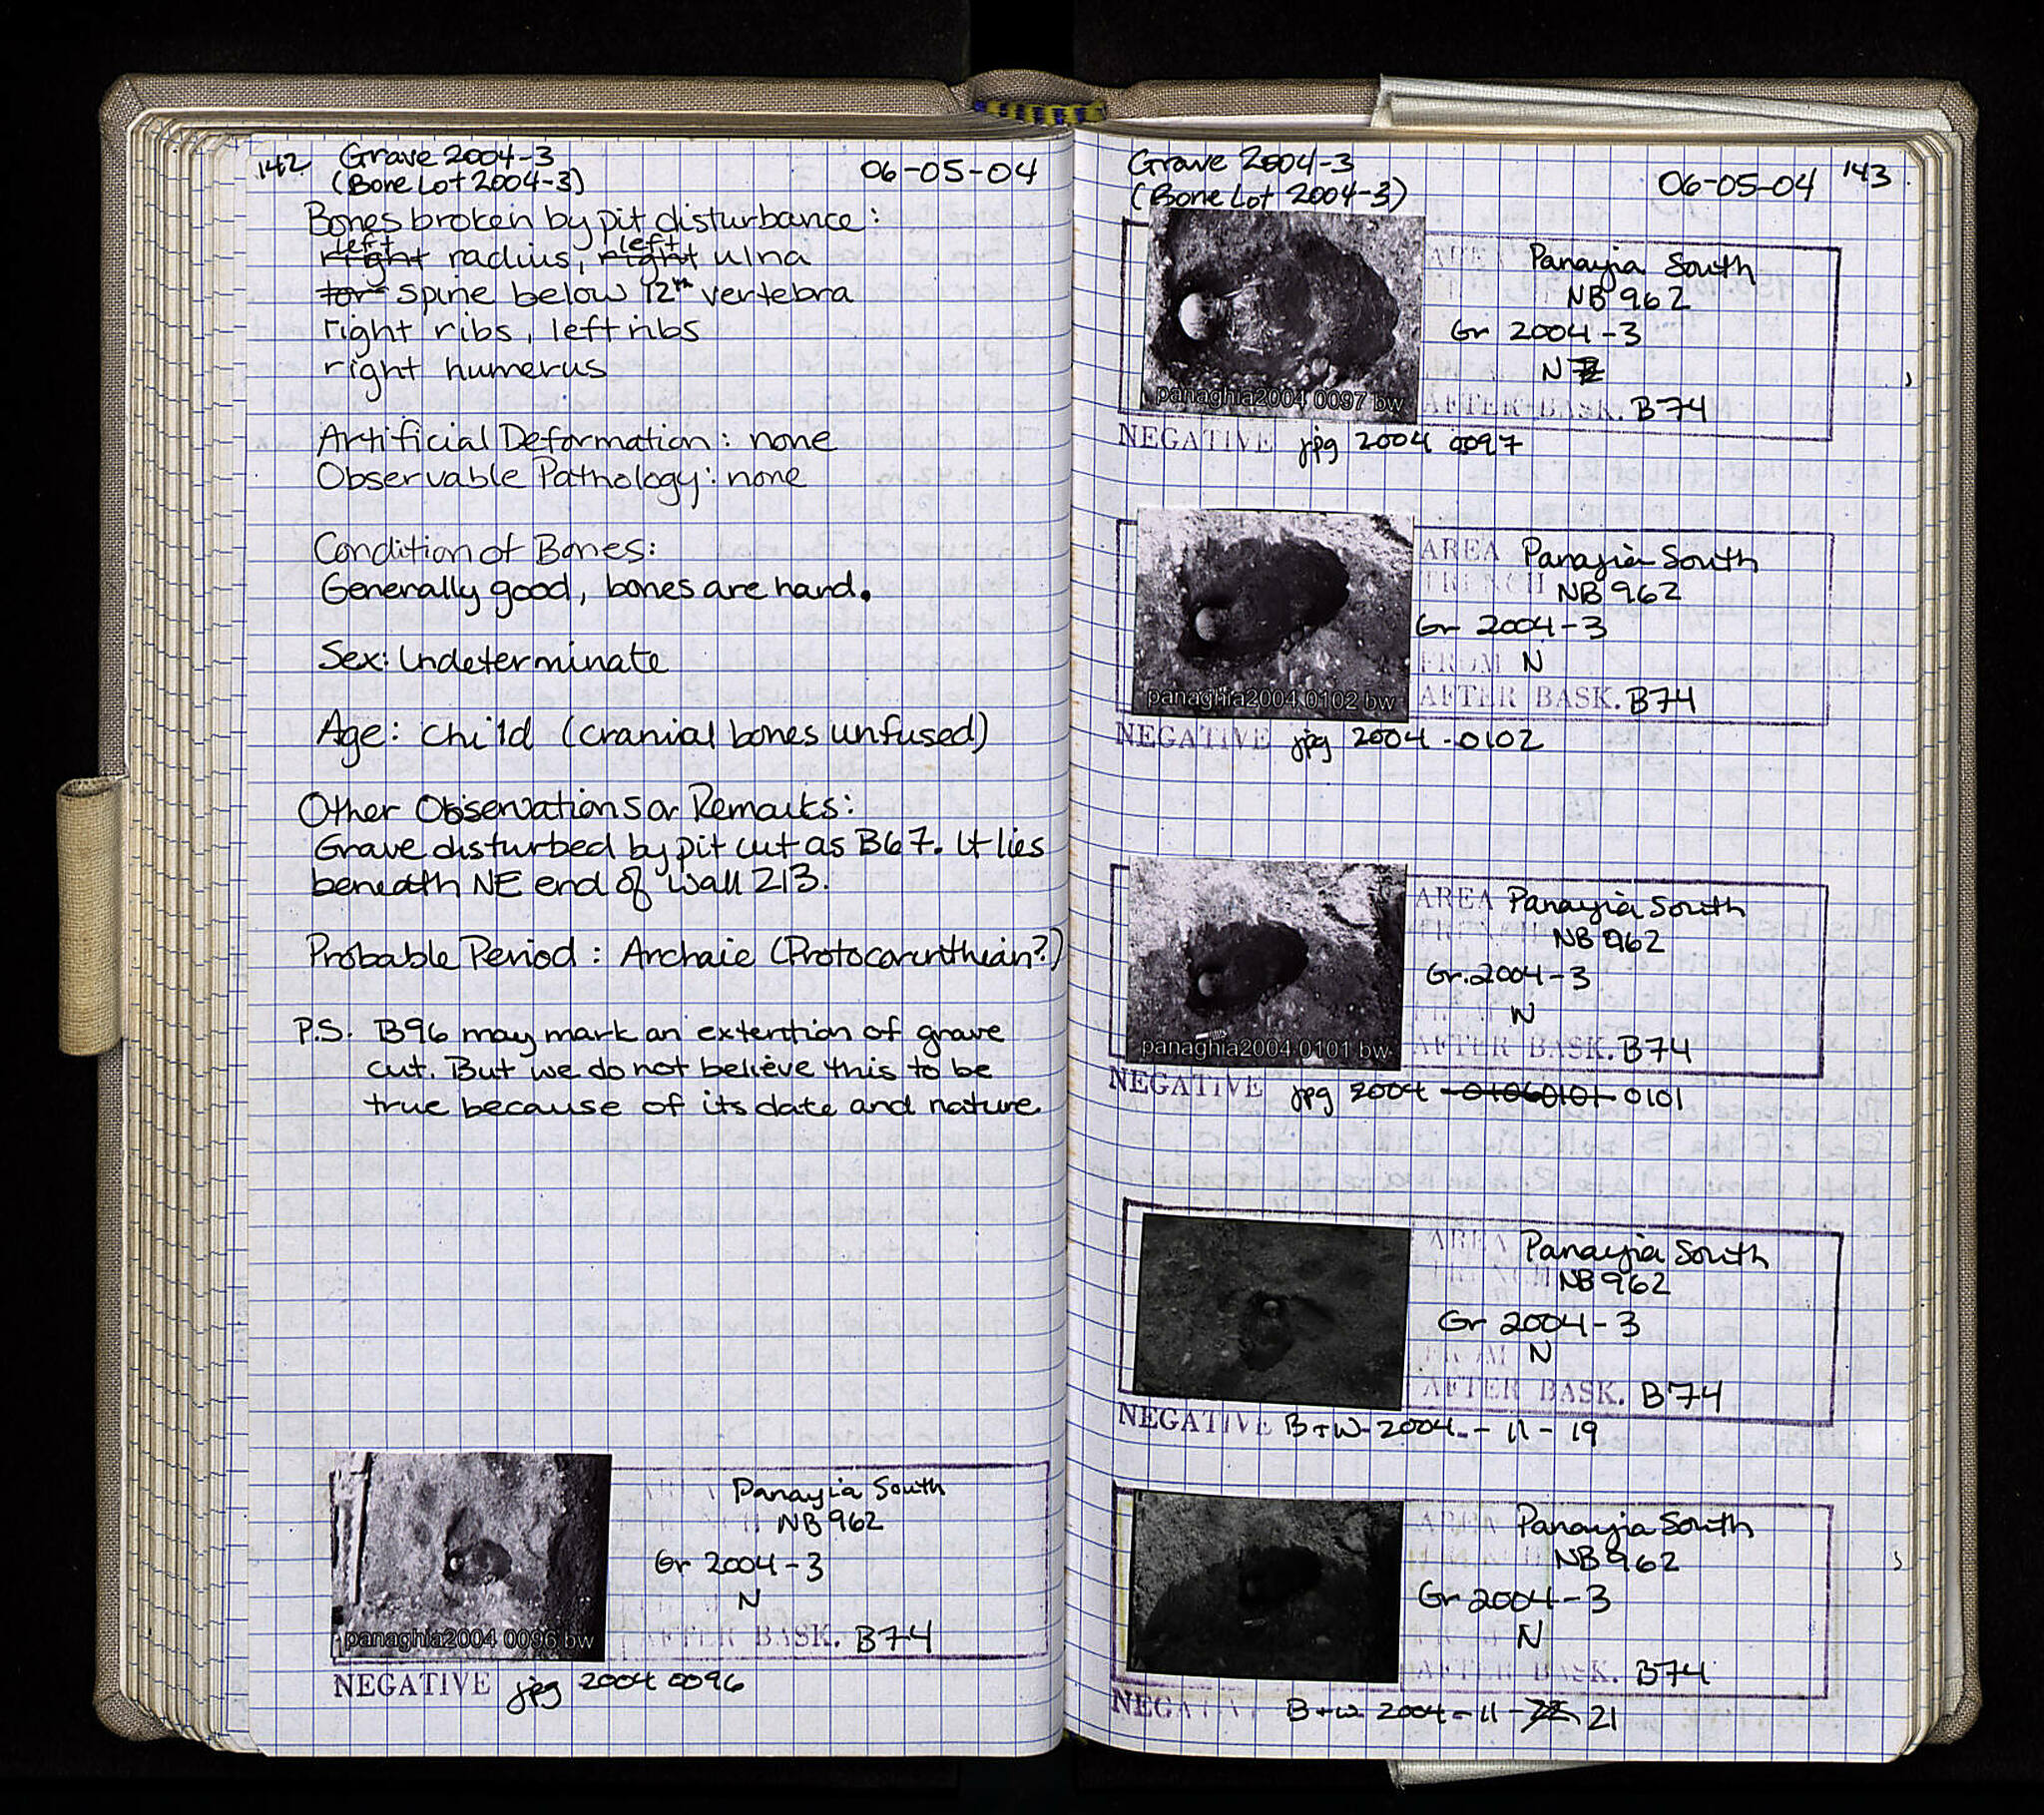 142 Grave 2004-3 06-05-04
(Bone Lot 2004-3)
Bones broken by pit disturbance:
left left
right radius, right ulna
tor spine below 12th vertebra
right ribs, left ribs
right humerus
Artificial Deformation: none
Observable Pathology: none
Condition of Bones:
Generally good, bones are hard.
Sex: Undeterminate
Age: child (cranial bones unfused)
Other Observations or Remarks:
Grave disturbed by pit cut as B67. It lies
beneath NE end of Wall 213.
Probable Period: Archaic (Protocorinthian?)
P.S. B96 may mark an extention of grave
cut. But we do not believe this to be
true because of its date and nature
Panayia South
NB 962
Gr 2004-3
N
panaghia2004 0096 bw
AFTER BASK. B74
NEGATIVE jpg 2004 0096
Grave 2004-3 06-05-04 143
(Bone Lot 2004-3)
AREA Panayia South
NB 962
Gr 2004-3
N
panaghia2004 0097 bw
AFTER BASK. B74
NEGATIVE jpg 2004 0097
AREA Panayia South
TRENCH NB 962
Gr 2004-3
FROM N
panaghia2004 0102 bw
AFTER BASK. B74
NEGATIVE jpg 2004-0102
AREA Panayia South
TRENCH NB 962
Gr. 2004-3
N
panaghia2004 0101 bw
AFTER BASK. B74
NEGATIVE jpg 2004 01060101 0101
AREA Panayia South
TRENCH NB 962
Gr 2004-3
FROM N
AFTER BASK. B74
NEGATIVE B+W-2004--11-19
AREA Panayia South
NB 962
Gr 2004-3
N
AFTER BASK. B74
NEGATIVE B+W 2004-11-22 21